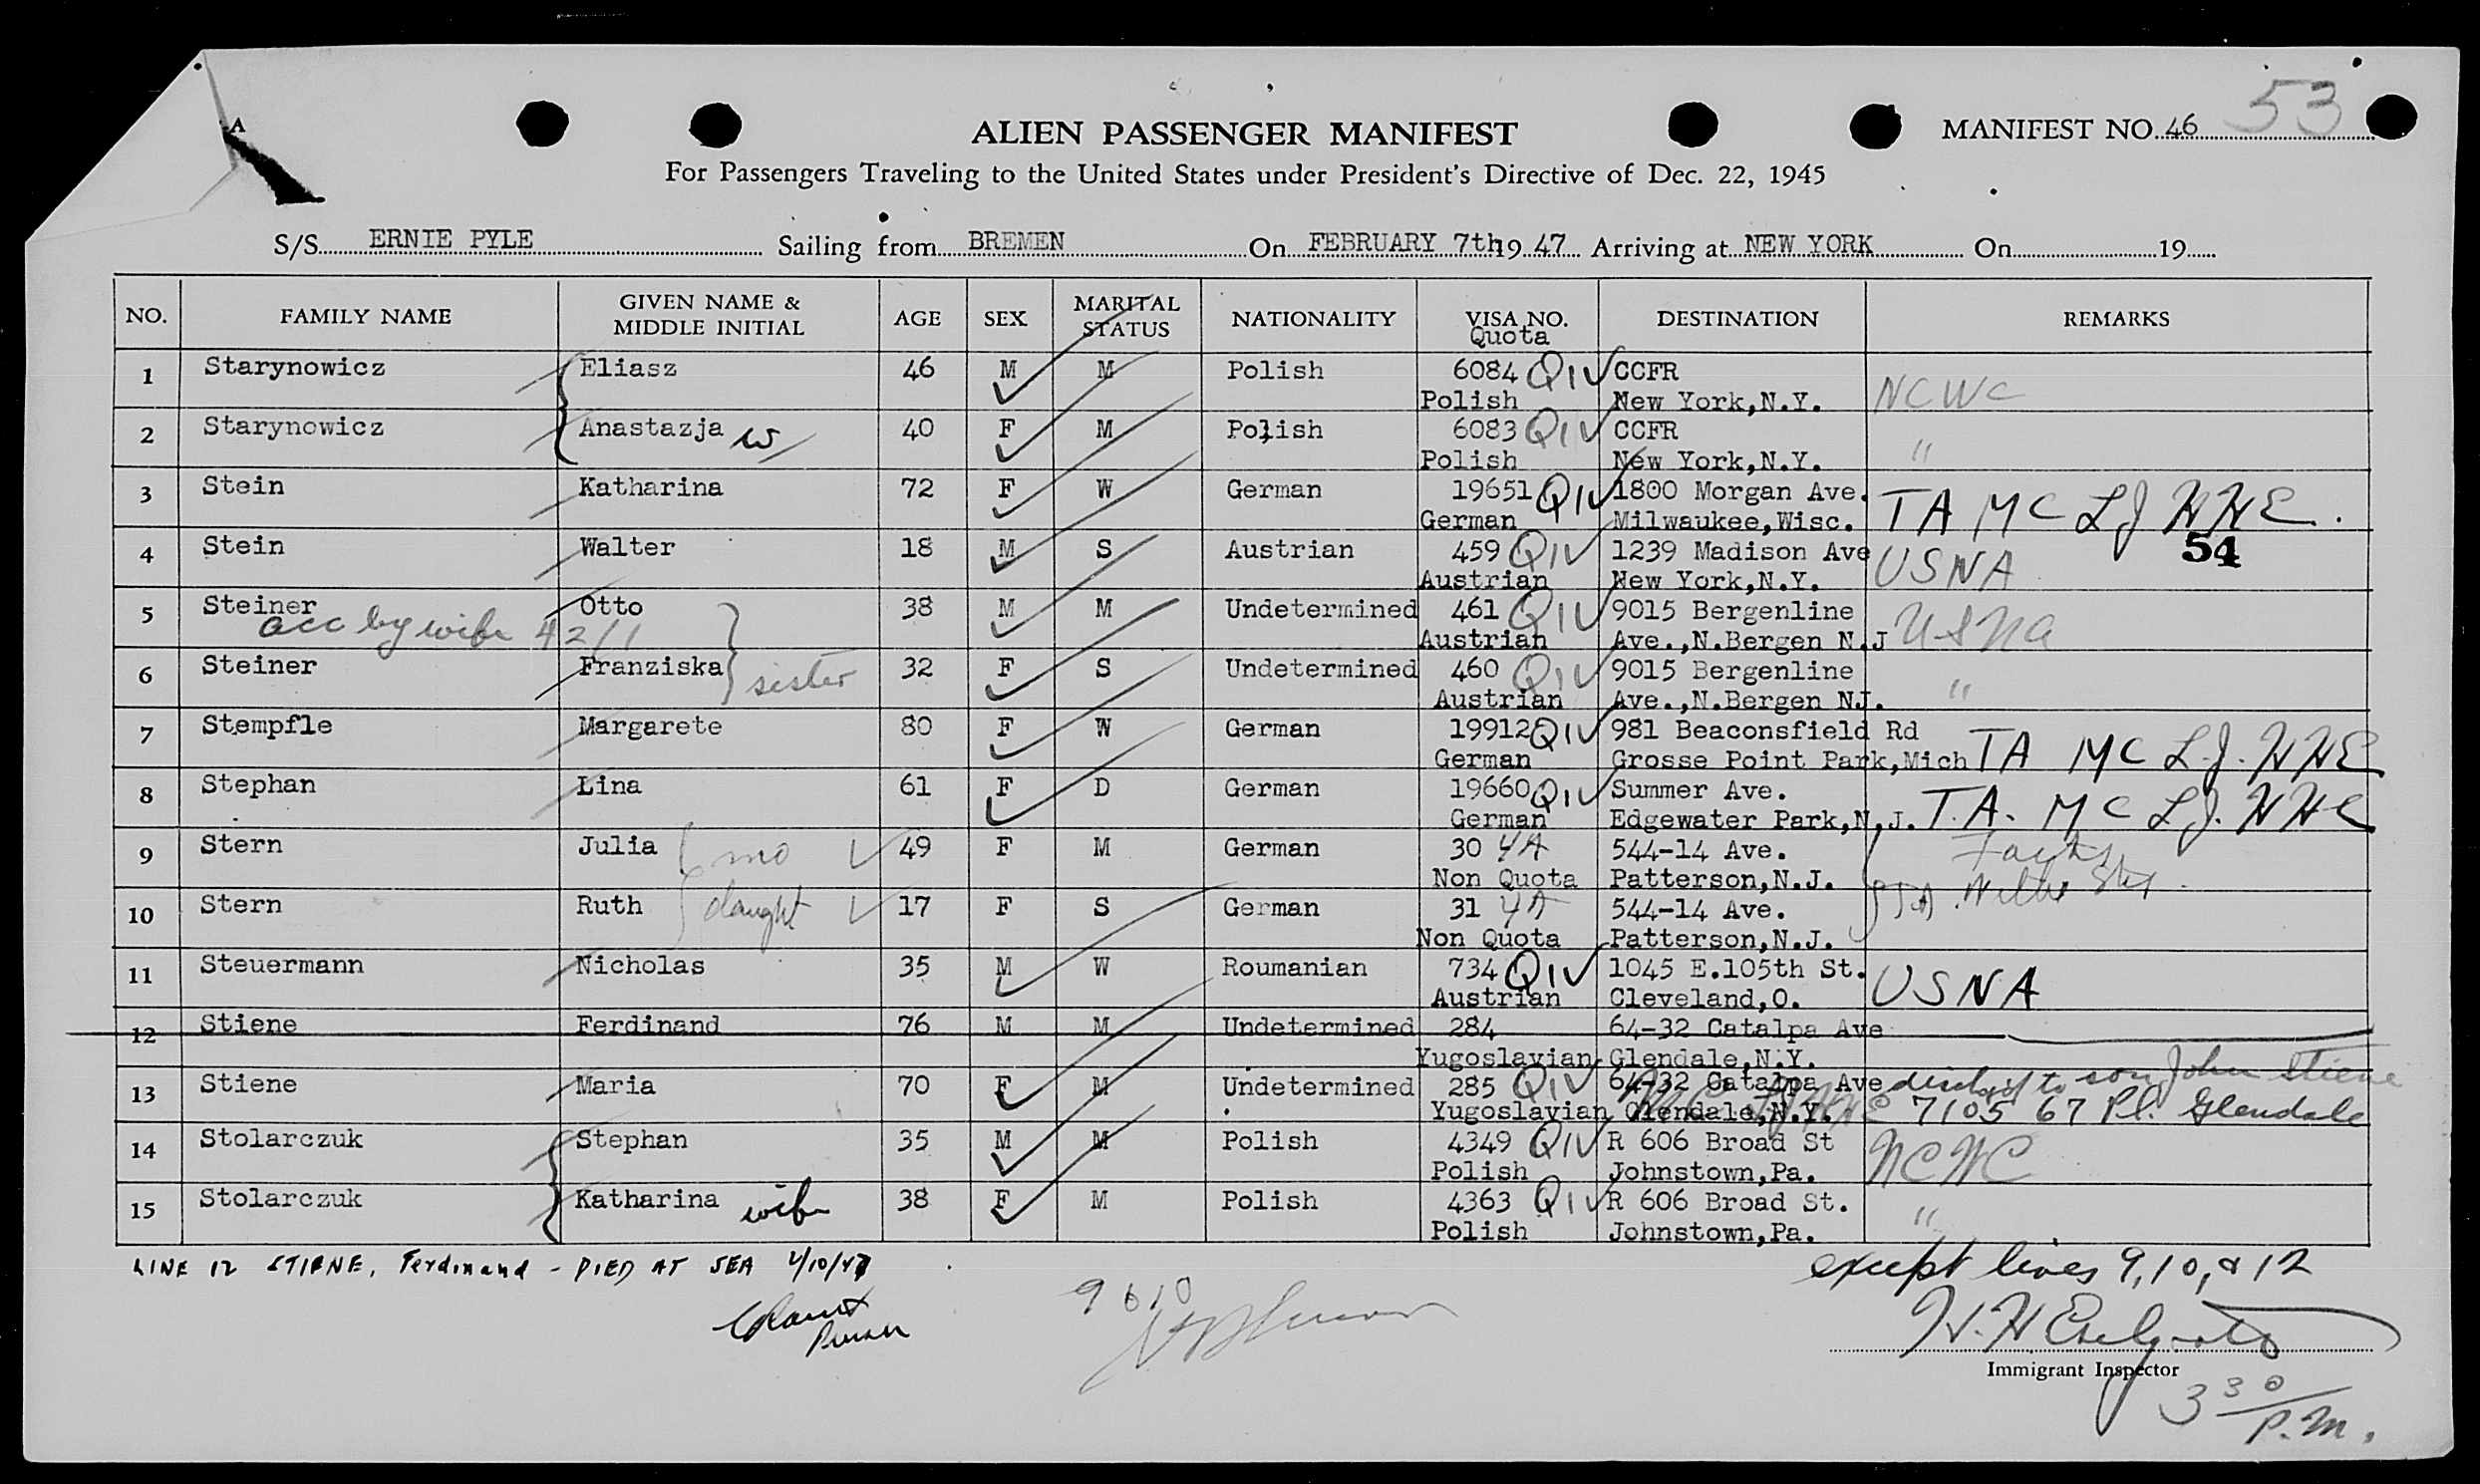 53
ALIEN PASSENGER MANIFEST
MANIFEST NO. 46
For Passengers Traveling to the United States under President's Directive of Dec. 22, 1945
S/S ERNIE PYLE Sailing from BREMEN On FEBRUARY 7th 19 47 Arriving at NEW YORK On 19
NO. FAMILY NAME GIVEN NAME & MIDDLE INITIAL AGE SEX MARITAL STATUS NATIONALITY VISA NO. Quota DESTINATION REMARKS
1 Starynowicz Eliasz 46 M M Polish 6084 QIV CCFR
Polish New York,N.Y. NCWC
2 Starynowicz Anastazja w 40 F M Polish 6083 QIV CCFR
Polish New York,N.Y. "
3 Stein Katharina 72 F W German 19651 QIV 1800 Morgan Ave.
German Milwaukee,Wisc. TA MC LJ HHE.
54
4 Stein Walter 18 M S Austrian 459 QIV 1239 Madison Ave
Austrian New York,N.Y. USNA
5 Steiner Otto 38 M M Undetermined 461 QIV 9015 Bergenline
acc by wife 4211 Austrian Ave.,N.Bergen N.J USNA
6 Steiner Franziska sister 32 F S Undetermined 460 QIV 9015 Bergenline
Austrian Ave.,N.Bergen NJ. "
7 Stempfle Margarete 80 F W German 19912 QIV 981 Beaconsfield Rd
German Grosse Point Park,Mich TA MC L.J. HHE
8 Stephan Lina 61 F D German 19660 QIV Summer Ave.
German Edgewater Park,N,J. T.A. MC LJ. HHE
9 Stern Julia mo 49 F M German 30 4A 544-14 Ave.
Non Quota Patterson,N.J.
10 Stern Ruth daught 17 F S German 31 4A 544-14 Ave.
Non Quota Patterson,N.J.
11 Steuermann Nicholas 35 M W Roumanian 734 QIV 1045 E.105th St.
Austrian Cleveland,O. USNA
12 Stiene Ferdinand 76 M M Undetermined 284 64-32 Catalpa Ave
Yugoslavian Glendale,N.Y.
13 Stiene Maria 70 F M Undetermined 285 QIV 64-32 Catalpa Ave to son John Stiene
Yugoslavian Glendale,N.Y. 7105 67 Pl. Glendale
14 Stolarczuk Stephan 35 M M Polish 4349 QIV R 606 Broad St
Polish Johnstown,Pa. NCWC
15 Stolarczuk Katharina wife 38 F M Polish 4363 QIV R 606 Broad St.
Polish Johnstown,Pa. "
LINE 12 STIENE, Ferdinand - DIED AT SEA 2/10/47
except lines 9,10, & 12
9 & 10
Immigrant Inspector
3 30 P.M.